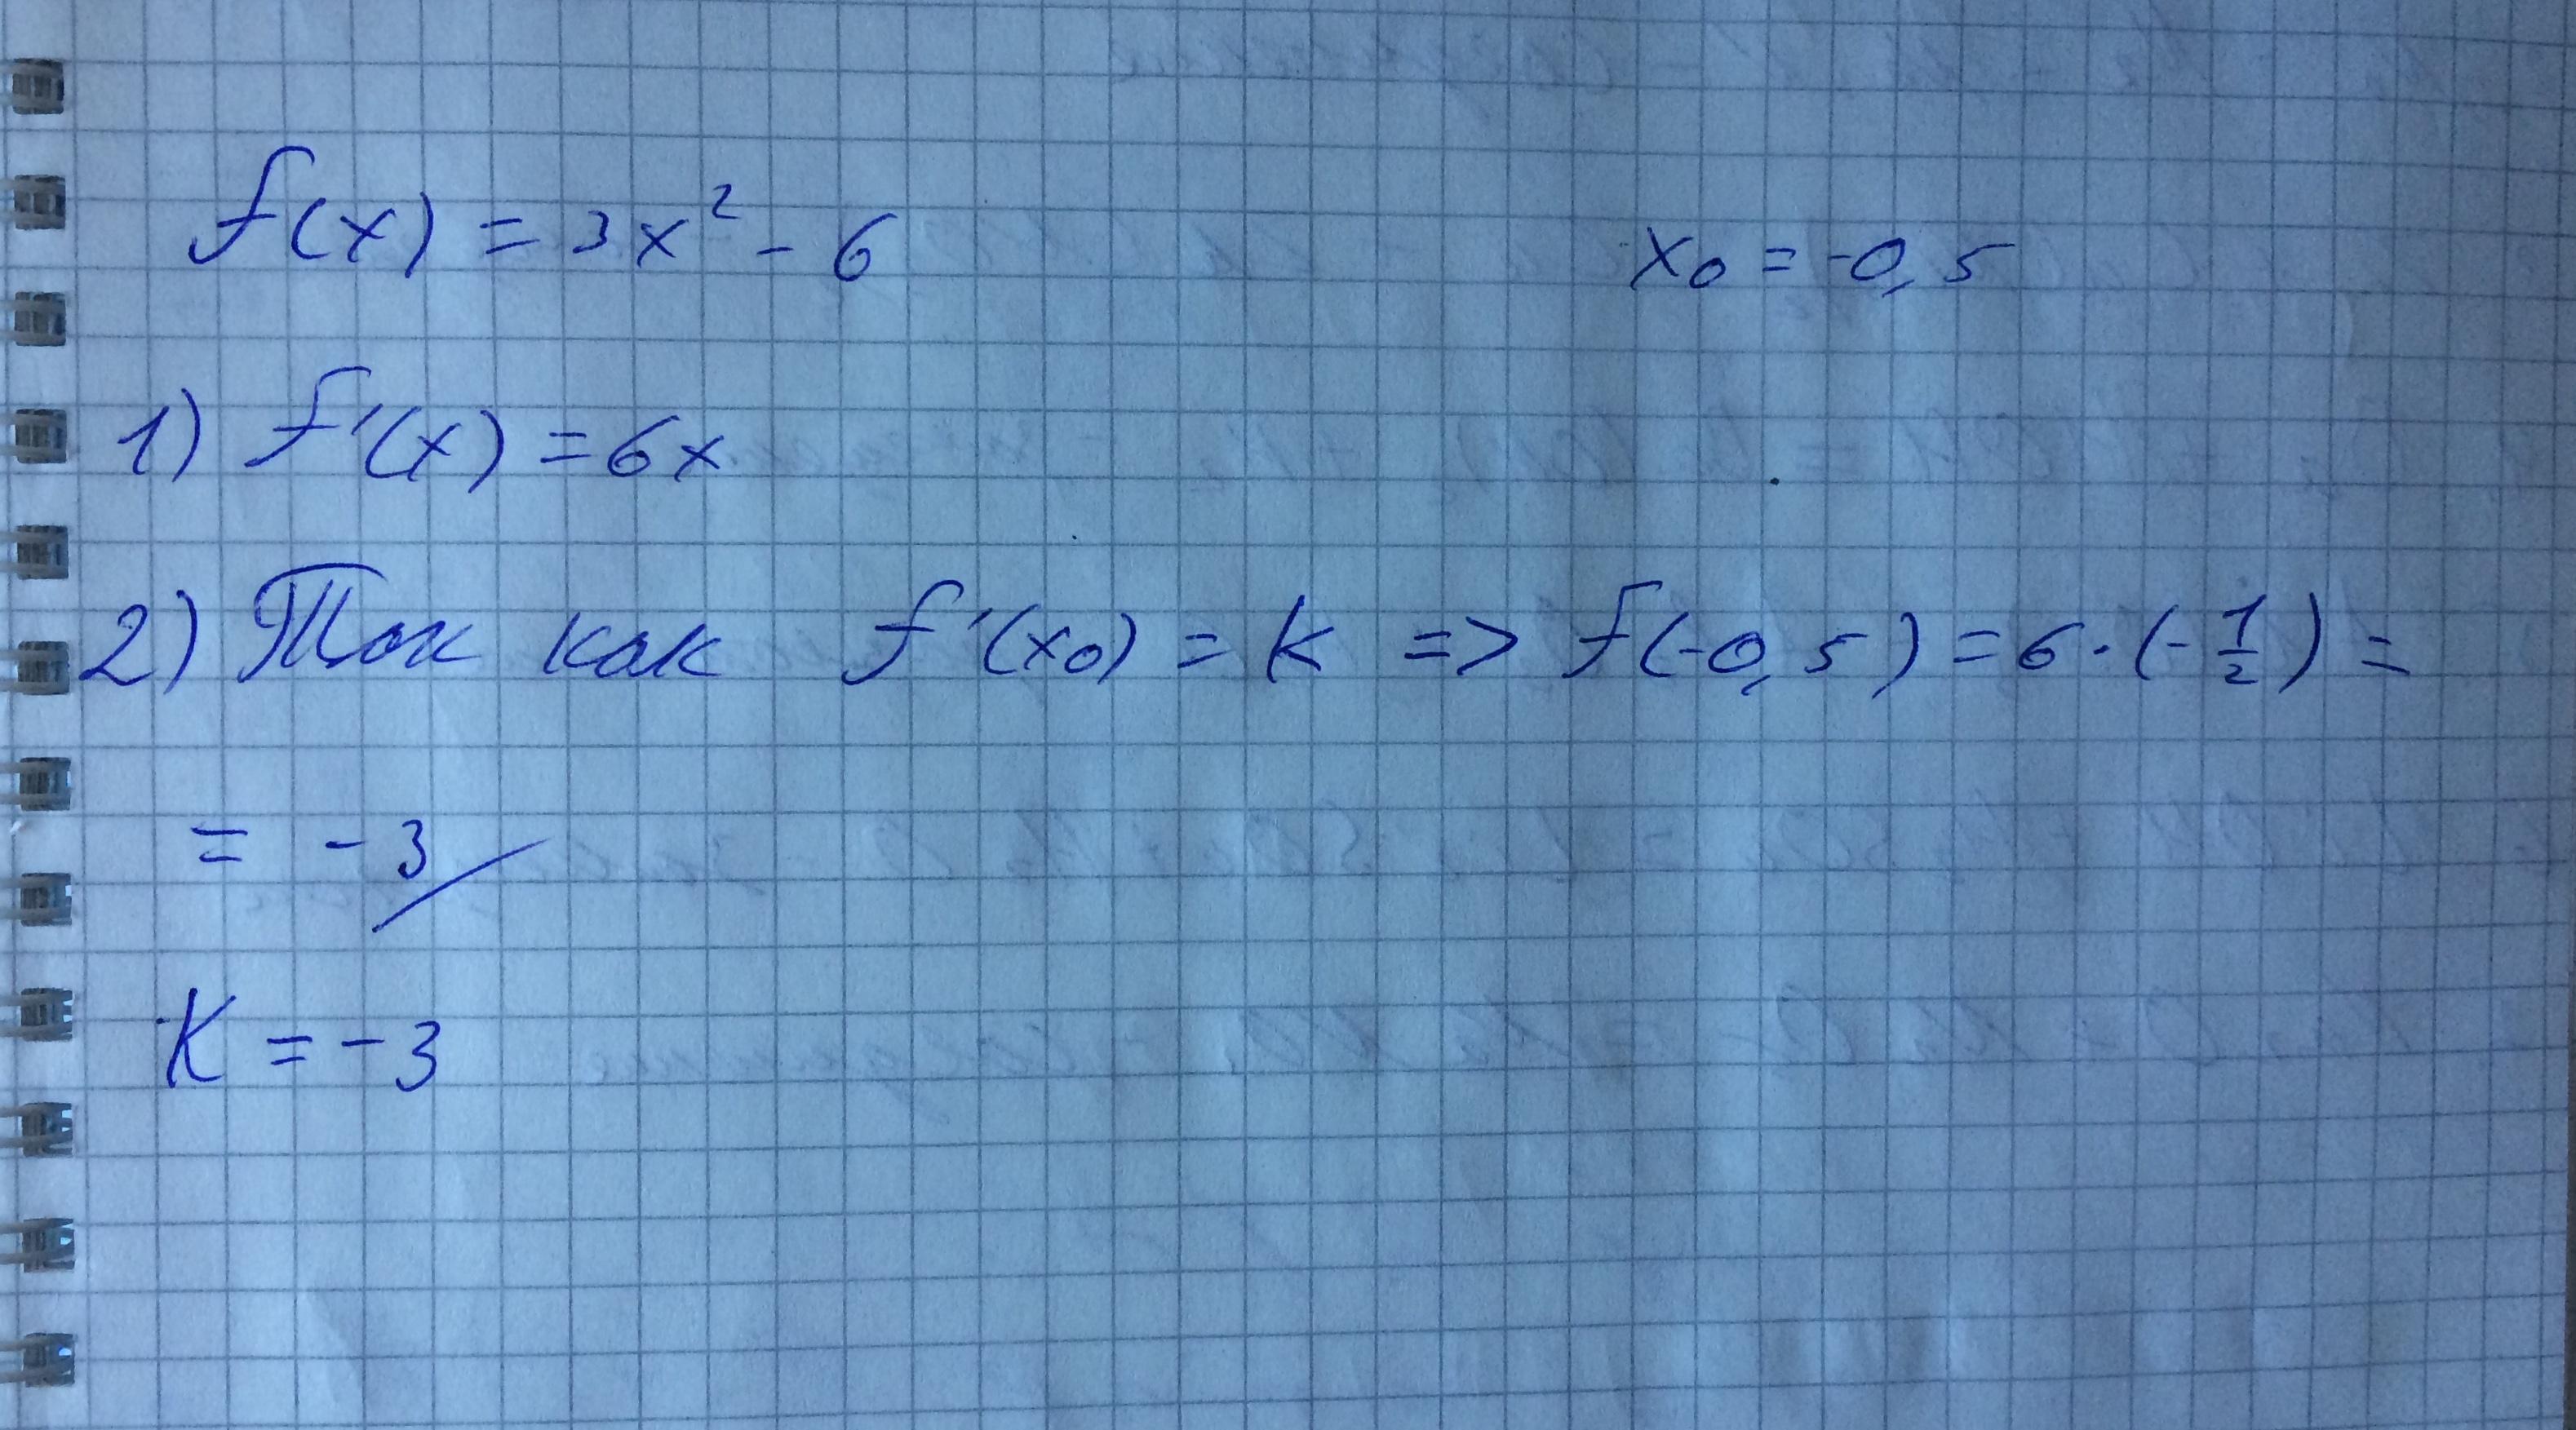 f(x) = 3x² - 6 x₀ = -0,5
1) f'(x) = 6x
2) Так как f'(x₀) = k => f(-0,5) = 6·(-1/2) =
= -3
K = -3